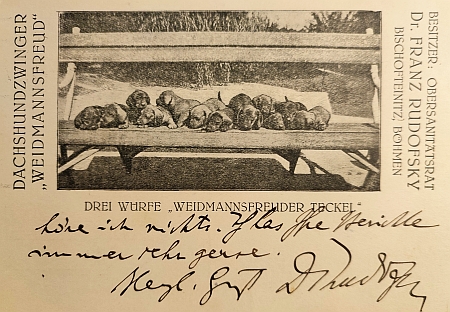 DACHSHUNDZWINGER
„WEIDMANNSFREUD"
BESITZER: OBERSANITÄTSRAT
Dr. FRANZ RUDOFSKY
BISCHOFTEINITZ, BÖHMEN
DREI WÜRFE „WEIDMANNSFREUDER TECKEL"
höre ich nichts. Ich las Ihre Berichte
immer sehr gerne.
Herzl. Gruß DRudofsky